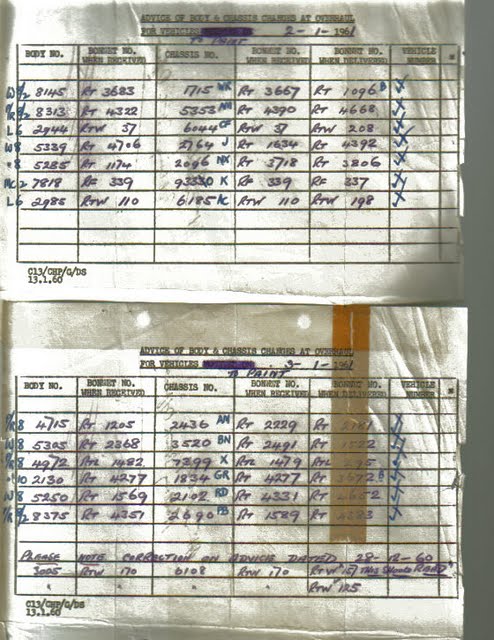 ADVICE OF BODY & CHASSIS CHANGES AT OVERHAUL
FOR VEHICLES TO PAINT 2-1-1961
BODY NO. BONNET NO. WHEN RECEIVED CHASSIS NO. BONNET NO. WHEN RECEIVED BONNET NO. WHEN DELIVERED VEHICLE NUMBER
8145 RT 3683 1715 WK RT 3667 RT 1096 B X
8313 RT 4322 5353 RT 4390 RT 4668 X
L6 2944 RTW 37 6044 CF RTW 37 RTW 208 X
W8 5339 RT 4706 2764 J RT 1634 RT 4392 X
"8 5285 RT 1174 2096 NX RT 3718 RT 3806 X
7818 RF 339 93330 K RF 339 RF 337 X
L6 2985 RTW 110 6185 RTW 110 RTW 198 X
C13/CHP/G/DS
13.1.60
ADVICE OF BODY & CHASSIS CHANGES AT OVERHAUL
FOR VEHICLES TO PAINT 3-1-1961
BODY NO. BONNET NO. WHEN RECEIVED CHASSIS NO. BONNET NO. WHEN RECEIVED BONNET NO. WHEN DELIVERED VEHICLE NUMBER
8 4715 RT 1205 2436 AN RT 2229 RT X
W8 5305 RT 2368 3520 BN RT 2491 RT 1522 X
8 4972 RTL 1482 7399 X RTL 1479 RTL X
10 2130 RT 4277 1834 GR RT 4277 RT 3672 B X
W8 5250 RT 1569 2102 RD RT 4331 RT 4652 X
8375 RT 4351 2690 PB RT 1589 RT X
PLEASE NOTE CORRECTION ON ADVICE DATED 28-12-60
3005 RTW 170 6108 RTW 170 RTW 157 THIS SHOULD READ
" " " " RTW 125
C13/CHP/G/DS
13.1.60